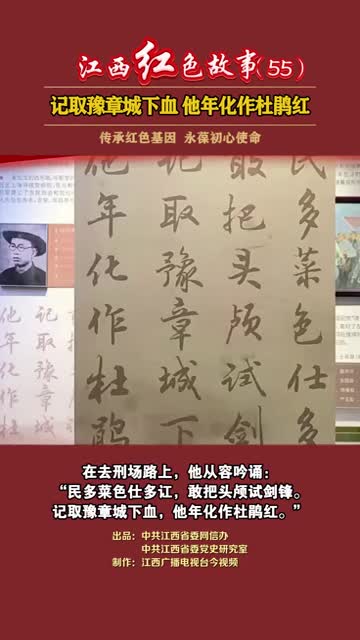 江西红色故事（55）
记取豫章城下血 他年化作杜鹃红
传承红色基因 永葆初心使命
民多菜色仕多
敢把头颅试剑
记取豫章城下
他年化作杜鹃
记取豫章城下
他年化作
在去刑场路上，他从容吟诵：
“民多菜色仕多讧，敢把头颅试剑锋。
记取豫章城下血，他年化作杜鹃红。”
出品：中共江西省委网信办
中共江西省委党史研究室
制作：江西广播电视台今视频